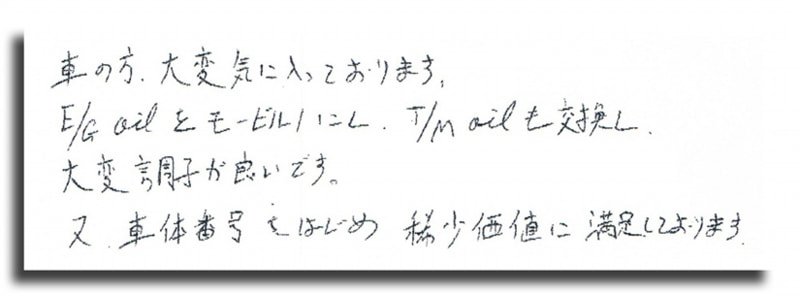 車の方、大変気に入っております。
E/G oilをモービル1にし、T/M oilも交換し、
大変調子が良いです。
又、車体番号をはじめ 稀少価値に満足しております。